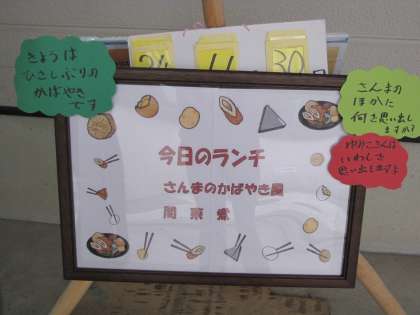 24
11
30
きょうは
ひさしぶりの
かばやき
です
さんまの
ほかに
何を思い出し
ますか?
ゆかこさんは
いわしを
思い出しますよ
今日のランチ
さんまのかばやき風
関東煮